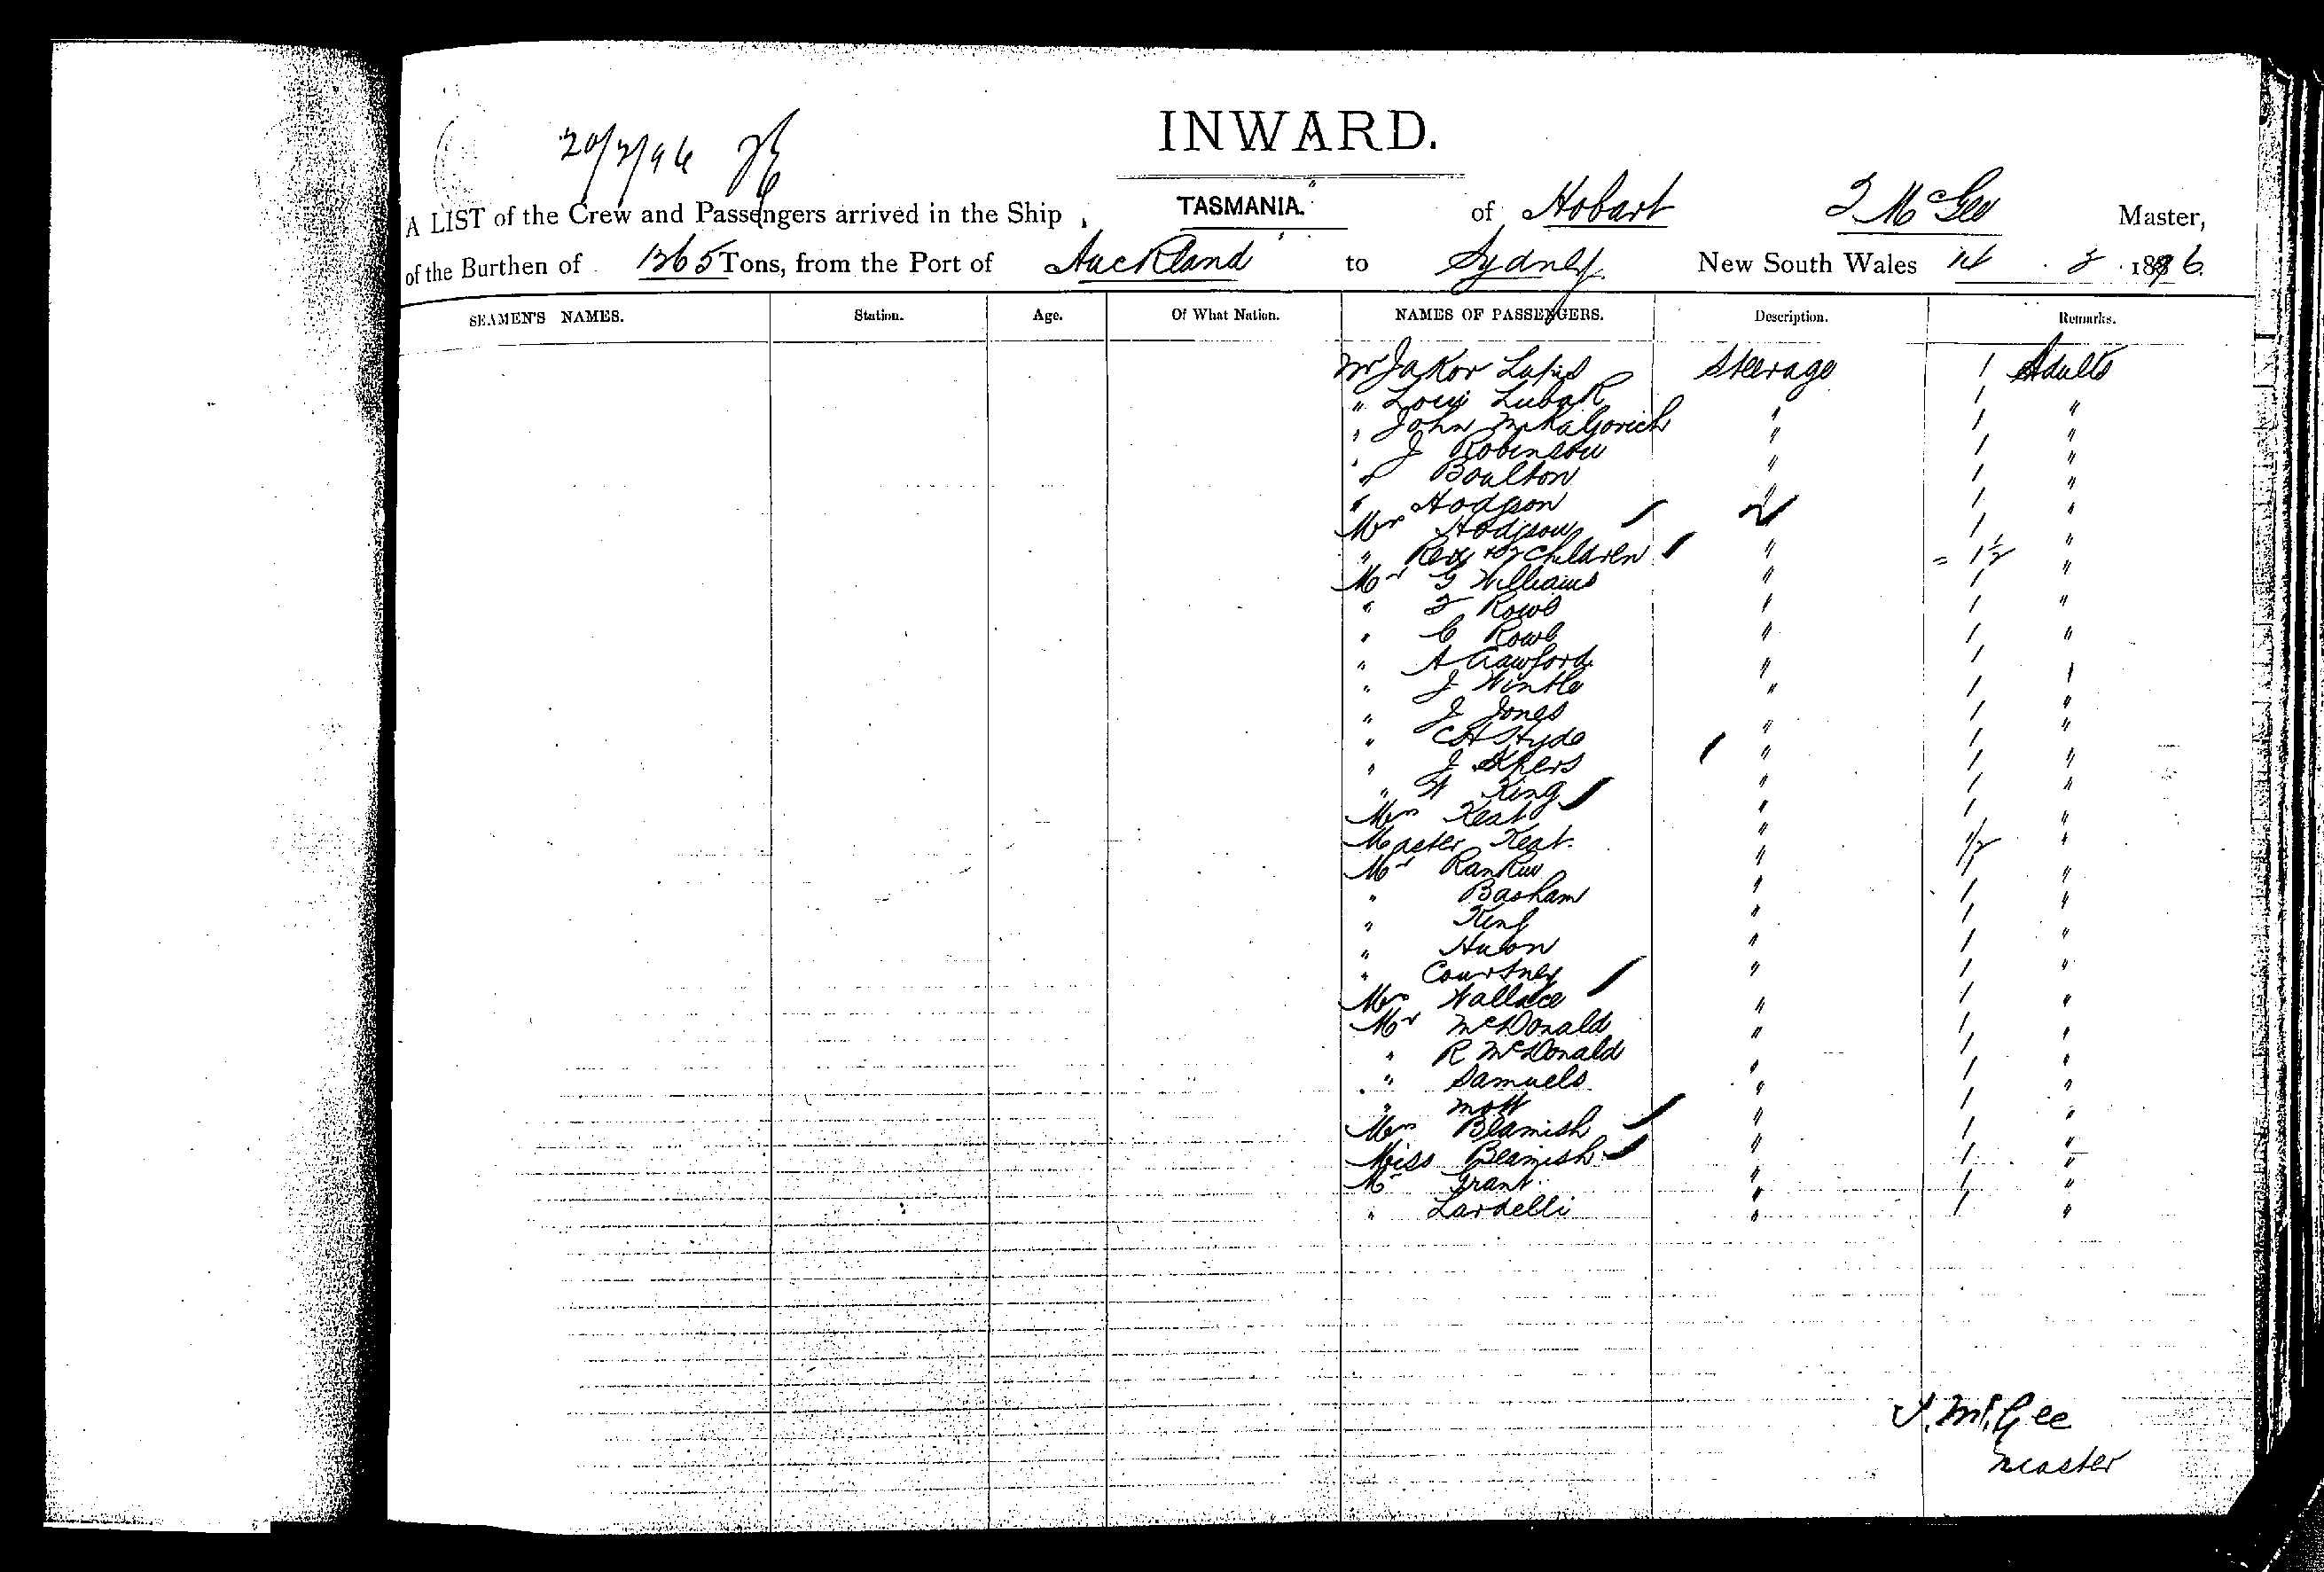 INWARD.
20/2/96
A LIST of the Crew and Passengers arrived in the Ship, TASMANIA. of Hobart T McGee Master,
of the Burthen of 1265 Tons, from the Port of Auckland to Sydney New South Wales 14 . 2 . 1896.
SEAMEN'S NAMES. Station. Age. Of What Nation. NAMES OF PASSENGERS. Description. Remarks.
Mr Jakov Steerage 1 Adults
" Lubak " 1 "
" John " 1 "
" J Robinson " 1 "
" Boulton " 1 "
" Hodgson " 1 "
Mrs Hodgson " 1 "
" Rex & 2 Children " = 1 1/2 "
Mr G Williams " 1 "
" F Rowe " 1 "
" C Rowe " 1 "
" A Crawford " 1 "
" J Wintle " 1 "
" J Jones " 1 "
" CH Hyde " 1 "
" J " 1 "
" W King " 1 "
Mrs Keat " 1 "
Master Keat. " 1/2 "
Mr Rankin " 1 "
" Basham " 1 "
" King " 1 "
" Huon " 1 "
" Courtney " 1 "
Mrs Wallace " 1 "
Mr McDonald " 1 "
" R McDonald " 1 "
" Samuels " 1 "
" Mott " 1 "
Mrs Beamish " 1 "
Miss Beamish " 1 "
Mr Grant " 1 "
" Lardelli " 1 "
T. McGee
Master